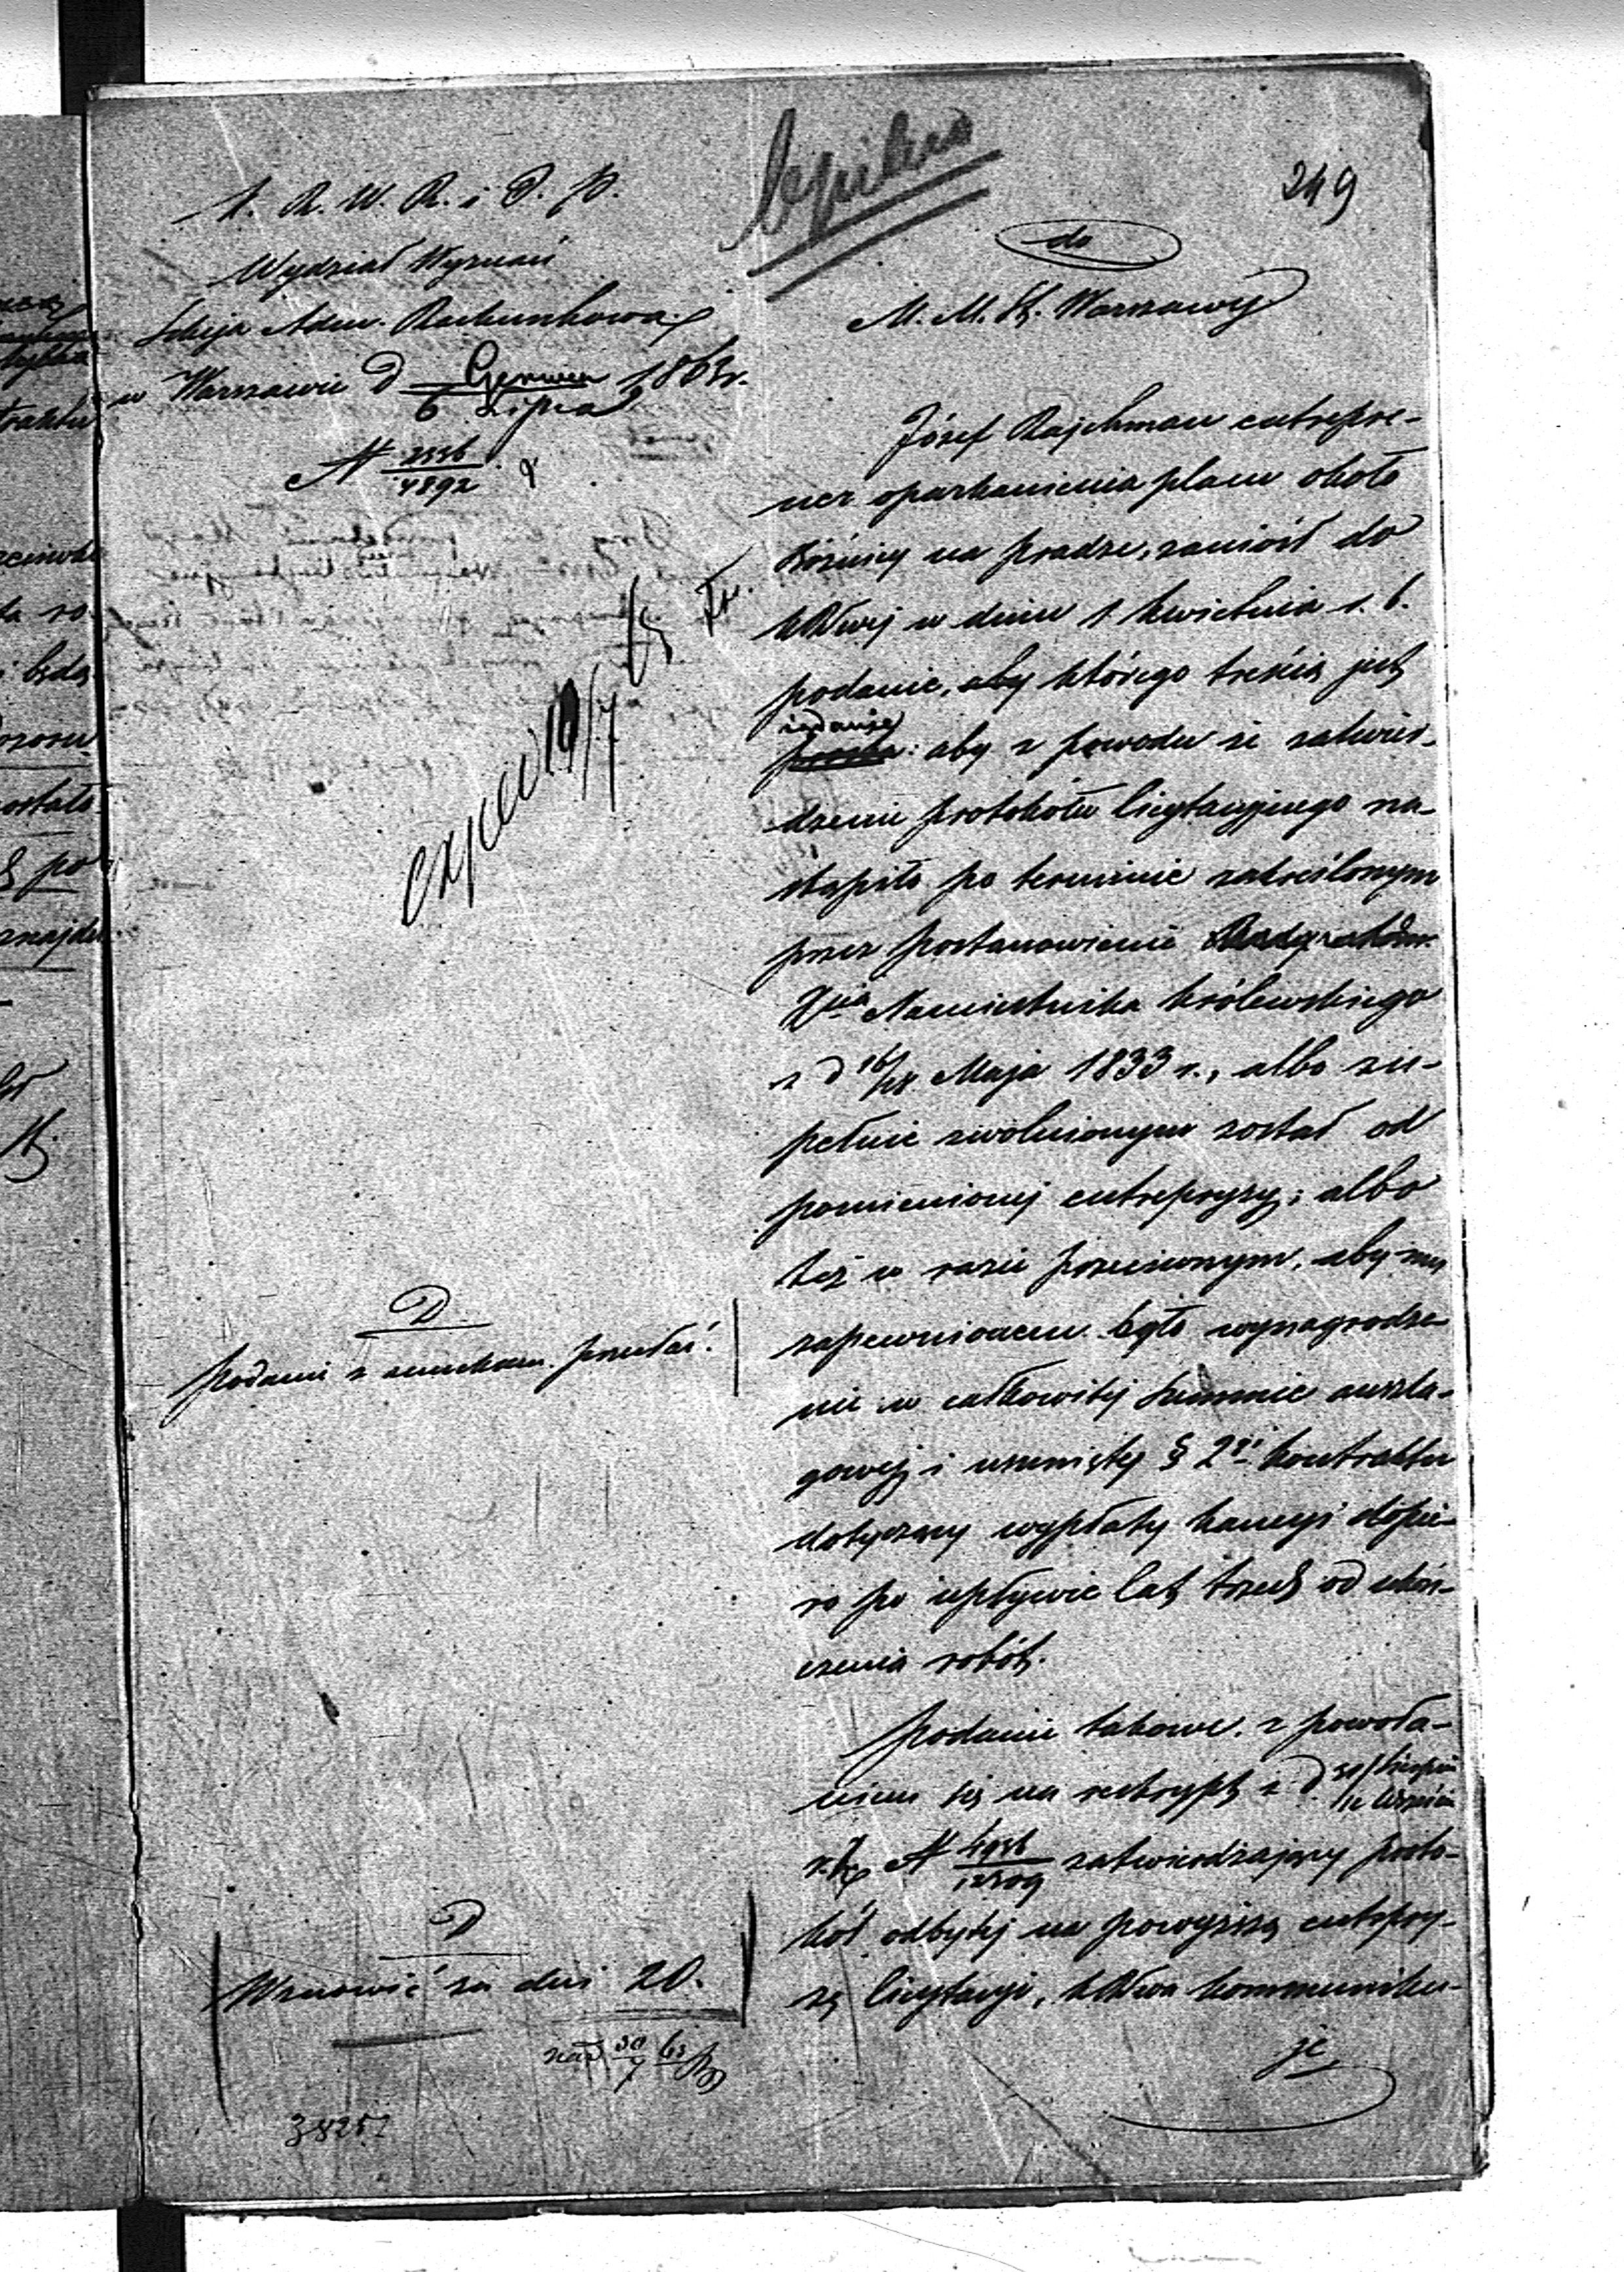 249
K. R. W. R. i O. P.
Wydział Wyznań
Sekcja Adm. Rachunkowa
w Warszawie d Czerwca 1863 r.
6 Lipca
N 2336
4892
do
M. M. St. Warszawy
Józef Rajchman entrepre-
ner oparkanienia placu około
Bóźnicy na Pradze, zaniósł do
KRwej w dniu 1 Kwietnia r. b.
podanie, aby którego treścią jest
żądanie
prośba: aby z powodu że zatwier-
dzenie protokółu licytacyjnego na-
stąpiło po terminie zakreślonym
przez postanowienie Rady
Xcia Namiestnika Królewskiego
z d 16/28 Maja 1833 r., albo zu-
pełnie zwolnionym został od
pomienionej entrepryzy; albo
też w razie przeciwnym, aby mu
zapewnionem było wynagrodze-
nie w całkowitej summie anszla-
gowej i usunięty § 2gi kontraktu
dotyczący wypłaty kaucyi dopie-
ro po upływie lat trzech od ukoń-
czenia robót.
Podanie takowe, z powoła-
niem się na reskrypt z d. 31/12 Sierpnia Września
r. z. N 12509 zatwierdzający proto-
kół odbytej na powyższą entrepry-
zę licytacyi, KRwa kommuniku-
je
D
podanie z anneksem przesłać.
D
Wznowić za dni 20.
30
7 63